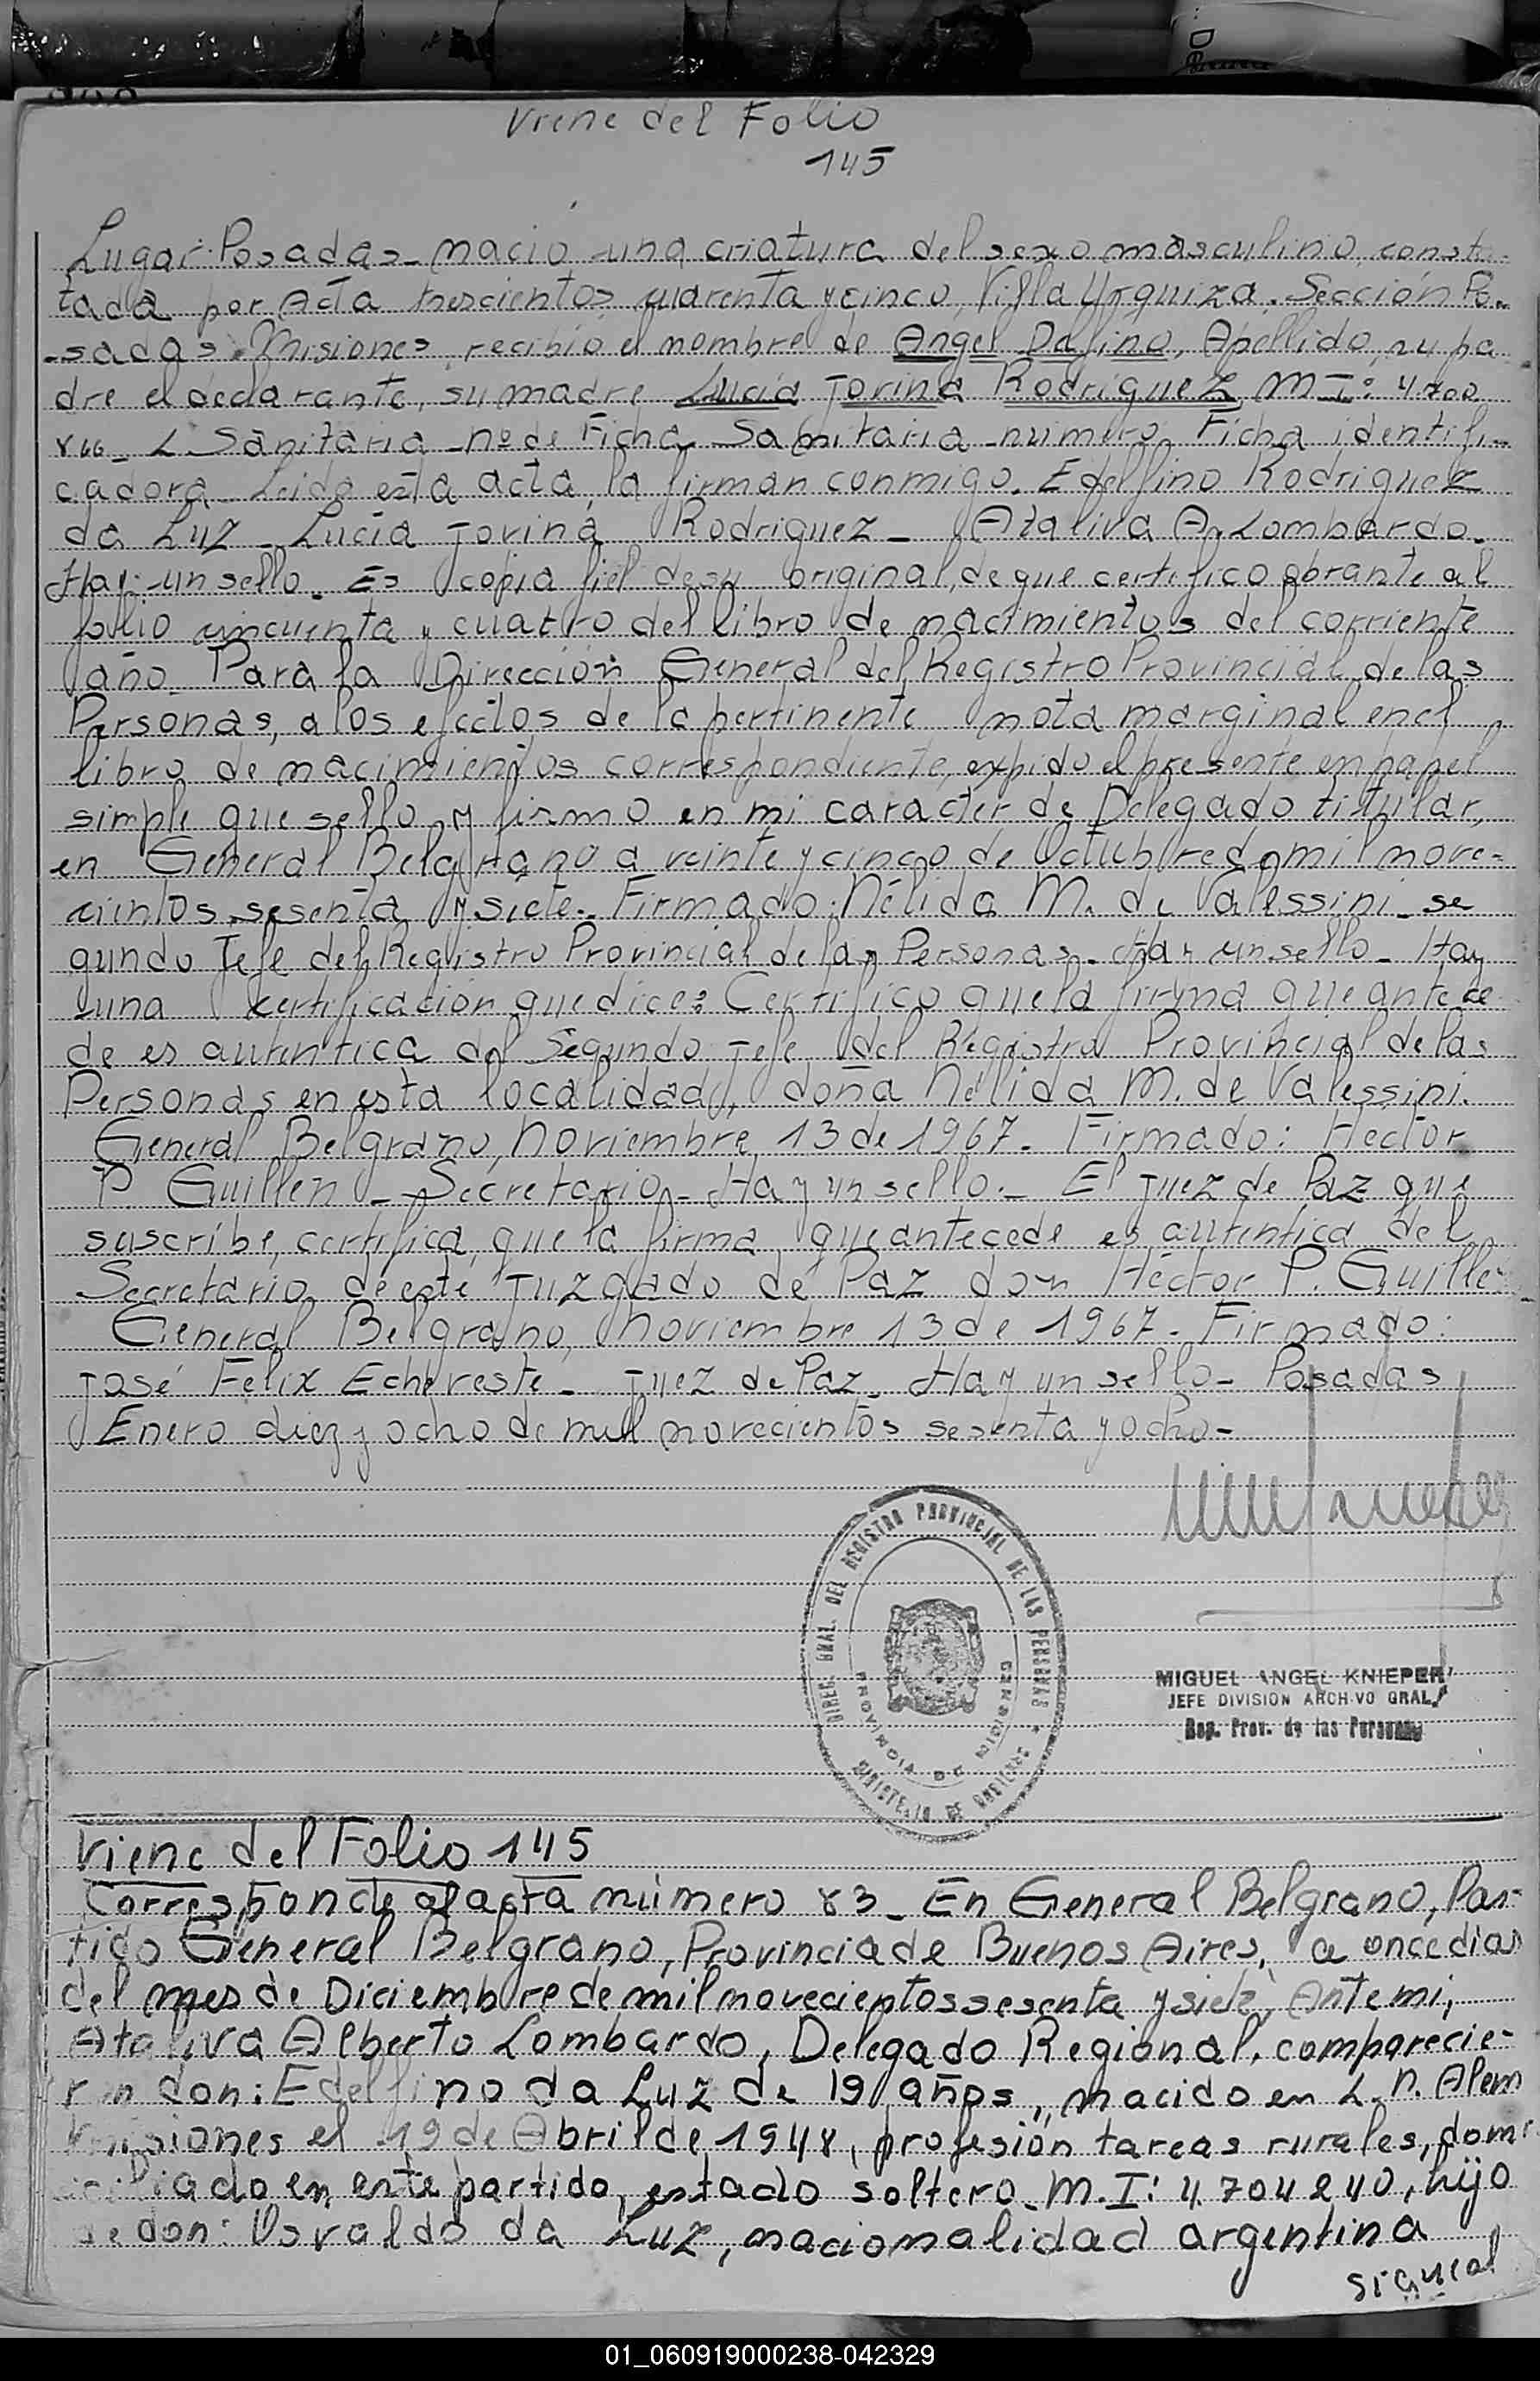 Viene del Folio
145
Lugar Posadas - nació una criatura del sexo masculino, consta-
tada por Acta trescientos cuarenta y cinco, Villa Urquiza. Sección Po-
-sadas. Misiones, recibió el nombre de Angel Dalfino, Apellido, su pa
dre el declarante, su madre Lucia Jovina Rodriguez M-I: 4700
L. Sanitaria - no de Ficha Sanitaria - número, Ficha identifi-
cadora - Leida esta acta, la firman conmigo. Edelfino Rodriguez
da Luz - Lucia Jovina Rodriguez - Ataliva A. Lombardo.
Hay un sello. Es copia fiel de su original, de que certifico obrante al
folio cincuenta y cuatro del libro de nacimientos del corriente
año. Para la Dirección General del Registro Provincial de las
Personas, a los efectos de la pertinente nota marginal en el
libro de nacimientos correspondiente, expido el presente en papel
simple que sello y firmo en mi caracter de Delegado titular,
en General Belgrano a veinte y cinco de Octubre de mil nove-
cientos sesenta y siete. Firmado: Nélida M. de Valessini - se
gundo Jefe del Registro Provincial de las Personas. Hay un sello - Hay
una certificación que dice: Certifico que la firma que antece
de es autentica del Segundo Jefe del Registro Provincial de las
Personas en esta localidad, doña Nélida M. de Valessini.
General Belgrano, Noviembre 13 de 1967. Firmado: Hector
P. Guillen - Secretario - Hay un sello. - El Juez de Paz que
suscribe, certifica que la firma que antecede es autentica del
Secretario de este Juzgado de Paz don Héctor P. Guillen
General Belgrano, Noviembre 13 de 1967. Firmado:
José Felix Echereste - Juez de Paz. Hay un sello - Posadas
Enero diez y ocho de mil novecientos sesenta y ocho -
DIREC. GRAL. DEL REGISTRO PROVINCIAL DE LAS PERSONAS
PROVINCIA DE MISIONES
MINISTERIO DE GOBIERNO
MIGUEL ANGEL KNIEPER
JEFE DIVISION ARCHIVO GRAL.
Reg. Prov. de las Personas
Viene del Folio 145
Corresponde al acta número 83 - En General Belgrano, Par-
tido General Belgrano, Provincia de Buenos Aires, a once dias
del mes de Diciembre de mil novecientos sesenta y siete, Ante mi,
Ataliva Alberto Lombardo, Delegado Regional, comparecie-
ron don: Edelfino da Luz de 19 años, nacido en L. N. Alem
Misiones el 19 de Abril de 1948, profesión tareas rurales, domi
ciliado en este partido, estado soltero. M.I: 4.704240, hijo
de don: Osvaldo da Luz, nacionalidad argentina
sigue al
01_060919000238-042329